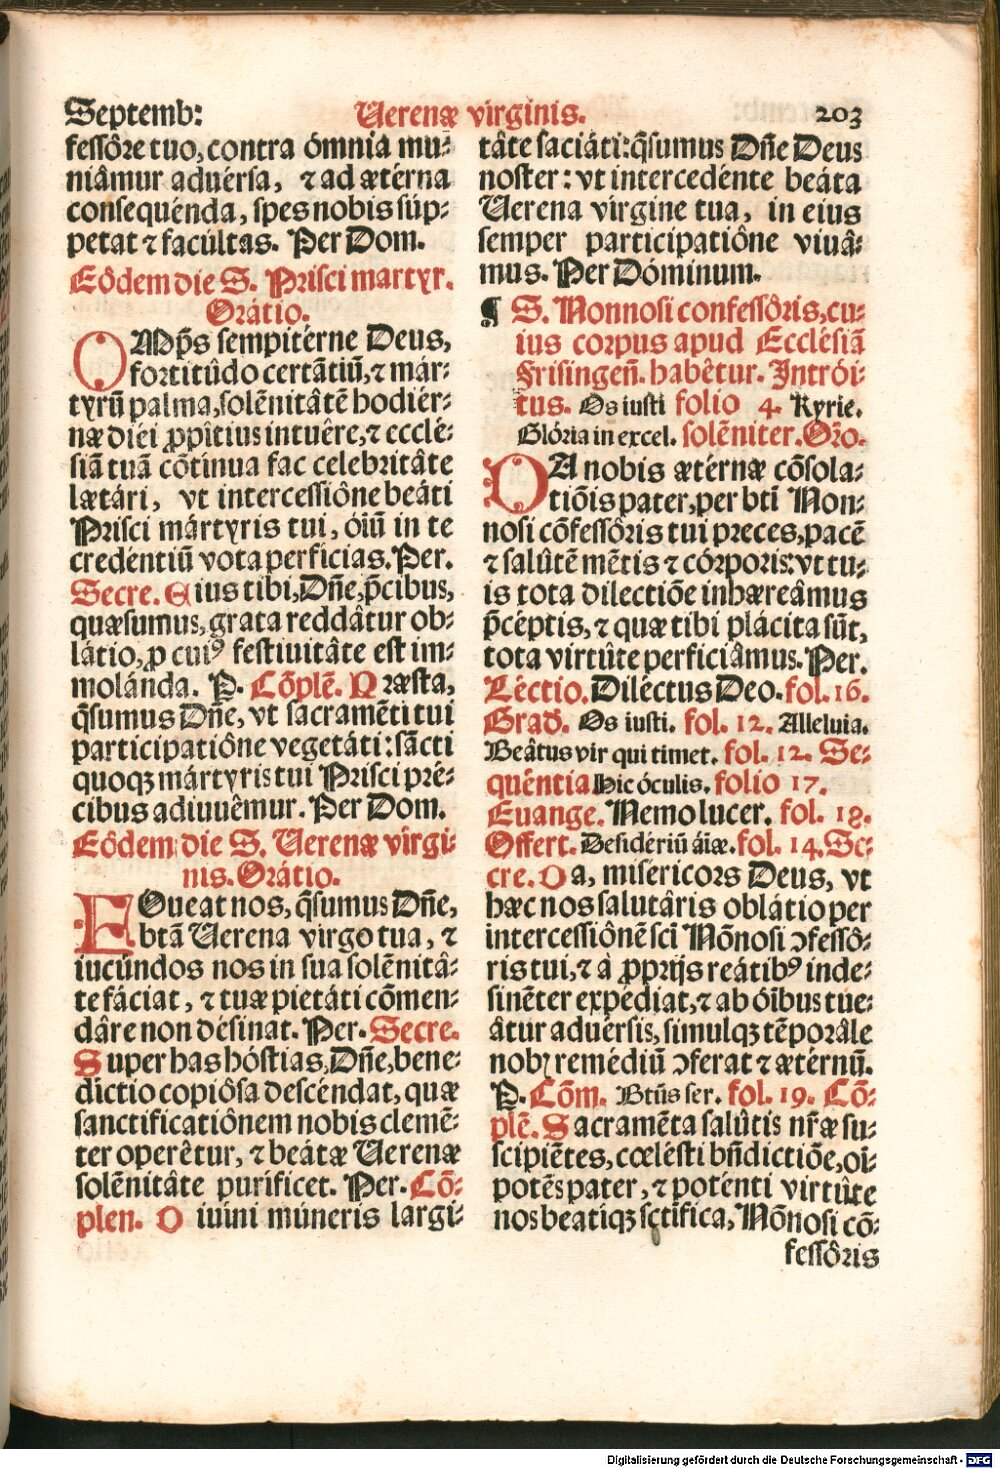 Septemb: Verenæ virginis. 203
fessôre tuo, contra ómnia mu-
niâmur aduérsa, ⁊ ad ætérna
consequénda, spes nobis súp-
petat ⁊ facúltas. Per Dom.
Eôdem die S. Prisci martyr.
Orátio.
OMp̄s sempitérne Deus,
fortitûdo certãtiũ, ⁊ már-
tyrũ palma, solẽnitâtẽ hodiér-
næ diéi ꝓpítius intuêre, ⁊ ecclé-
siã tuã cõtinua fac celebritâte
lætári, vt intercessiône beáti
Prisci mártyris tui, óiũ in te
credéntiũ vota perficias. Per.
Secre. Eius tibi, Dñe, p̄cibus,
quæsumus, grata reddâtur ob-
látio, ꝓ cuiꝰ festiuitâte est im-
molánda. P. Cõplẽ. Præsta,
q̃sumus Dñe, vt sacramẽti tui
participatiône vegetáti: sãcti
quoqꝫ mártyris tui Prisci pré-
cibus adiuuêmur. Per Dom.
Eôdem die S. Verenæ vírgi-
nis. Orátio.
FOueat nos, q̃sumus Dñe,
btã Verena virgo tua, ⁊
iucúndos nos in sua solẽnitâ-
te fáciat, ⁊ tuæ pietáti cõmen-
dâre non désinat. Per. Secre.
Super has hóstias, Dñe, bene-
díctio copiôsa descéndat, quæ
sanctificatiônem nobis clemẽ-
ter operêtur, ⁊ beátæ Verenæ
solẽnitâte puríficet. Per. Cõ-
plen. Diuíni múneris largi-
tâte saciáti: q̃sumus Dñe Deus
noster: vt intercedénte beáta
Verena vírgine tua, in eius
semper participatiône viuâ-
mus. Per Dóminum.
¶ S. Nonnosi confessôris, cu-
ius corpus apud Ecclésiã
Frisingeñ. habêtur. Intrói-
tus. Os iusti folio 4. Kyrie.
Glória in excel. solẽniter. Oŕo.
DA nobis ætérnæ cõsola-
tiõis pater, per btĩ Non-
nosi cõfessôris tui preces, pacẽ
⁊ salûtẽ mẽtis ⁊ córporis: vt tu-
is tota dilectiõe inhæreâmus
p̄céptis, ⁊ quæ tibi plácita sũt,
tota virtûte perficiâmus. Per.
Léctio. Diléctus Deo. fol. 16.
Grad. Os iusti. fol. 12. Alleluia.
Beâtus vir qui timet. fol. 12. Se-
quéntia Hic óculis. folio 17.
Euange. Nemo lucer. fol. 18.
Offert. Desidériũ áiæ. fol. 14. Se-
cre. Da, miséricors Deus, vt
hæc nos salutâris oblátio per
intercessiônẽ scĩ Nõnosi ɔfessô-
ris tui, ⁊ à ꝓprijs reátibꝰ inde-
sinẽter expédiat, ⁊ ab óĩbus tue-
âtur aduérsis, simulqꝫ tẽporâle
nobꝭ remédiũ ɔferat ⁊ ætérnũ.
P. Cõm. Btũs ser. fol. 19. Cõ-
plẽ. Sacramẽta salûtis nr̃æ su-
scipiẽtes, cœlésti bñdictiõe, oĩ-
potẽs pater, ⁊ poténti virtûte
nos beatíqꝫ sctĩfica, Nõnosi cõ-
fessôris
Digitalisierung gefördert durch die Deutsche Forschungsgemeinschaft - DFG